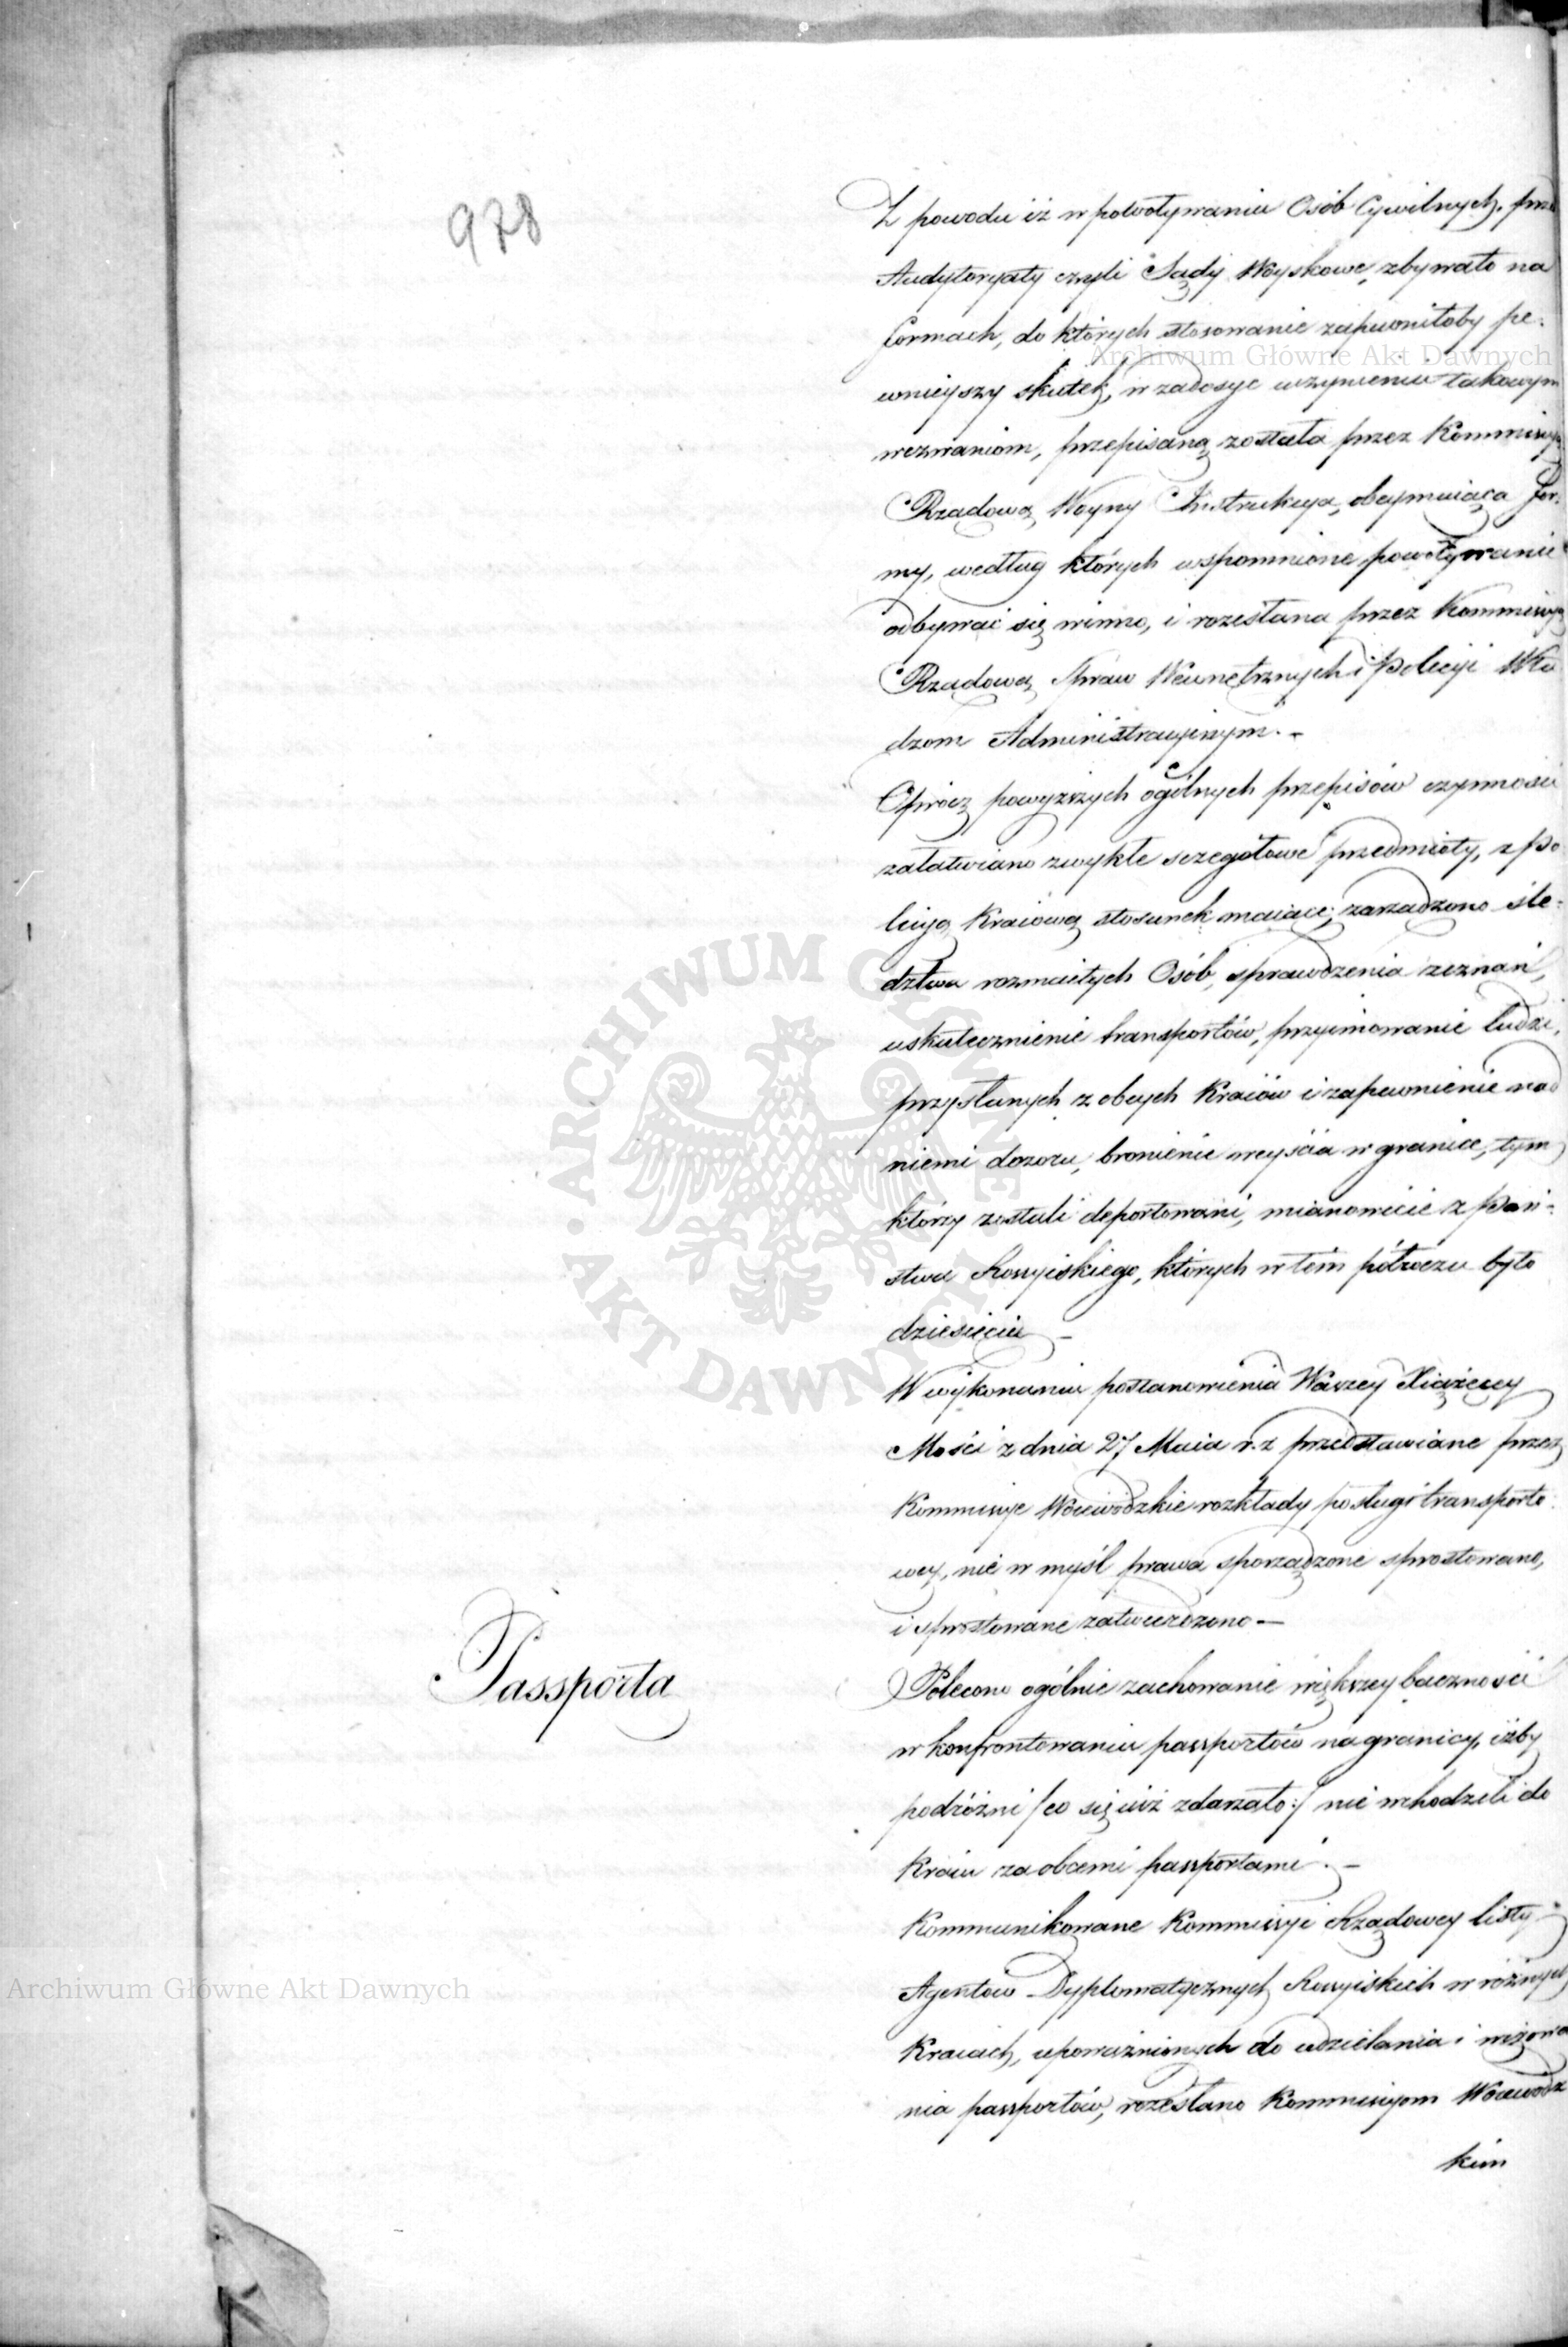 978
Z powodu iż w powoływaniu Osób Cywilnych, prze
Audytoryaty czyli Sądy Woyskowe, zbywało na
formach, do których stosowanie zapewniłoby pe-
wnieyszy skutek, w zadosyć uczynieniu takowym
wezwaniom, przepisaną została przez Kommissyą
Rządową Woyny Instrukcya, obeymuiąca for-
my, według których wspomnione powoływanie
odbywać się winno, i rozesłana przez Kommissyą
Rządową Spraw Wewnętrznych i Policyi Wła
dzom Administracyinym. -
Oprócz powyższych ogólnych przepisów czynności
załatwiano zwykłe szczegółowe przedmioty, z Po
licyą Kraiową stosunek maiące; zarządzono śle-
dztwa rozmaitych Osób, sprawdzenia zeznań,
uskutecznienie transportów, przyimowanie ludzi,
przysłanych z obcych Kraiów i zapewnienie nad
niemi dozoru, bronienie weyścia w granice, tym
którzy zostali deportowani, mianowicie z Pań-
stwa Rossyiskiego, których w tém półroczu było
dziesięciu -
W wykonaniu postanowienia Waszey Xiążęcey
Mości z dnia 27 Maia r. z przedstawiane przez
Kommissye Woiewódzkie rozkłady posługi transporto
wey, nie w myśl prawa sporządzone sprostowano,
i sprostowane zatwierdzono —
Passporta
Polecono ogólnie zachowanie większey baczności
w konfrontowaniu passportów na granicy, iżby
podróżni /co się iuż zdarzało:/ nie wchodzili do
Kraiu za obcemi passportami. -
Kommunikowane Kommissyi Rządowey listy
Agentów Dyplomatycznych Rossyiskich w różnych
Kraiach, upoważnionych do udzielania i wizowa
nia passportów, rozesłano Kommissyom Woiewódz
kim
Archiwum Główne Akt Dawnych
Archiwum Główne Akt Dawnych
· ARCHIWUM GŁÓWNE · AKT DAWNYCH